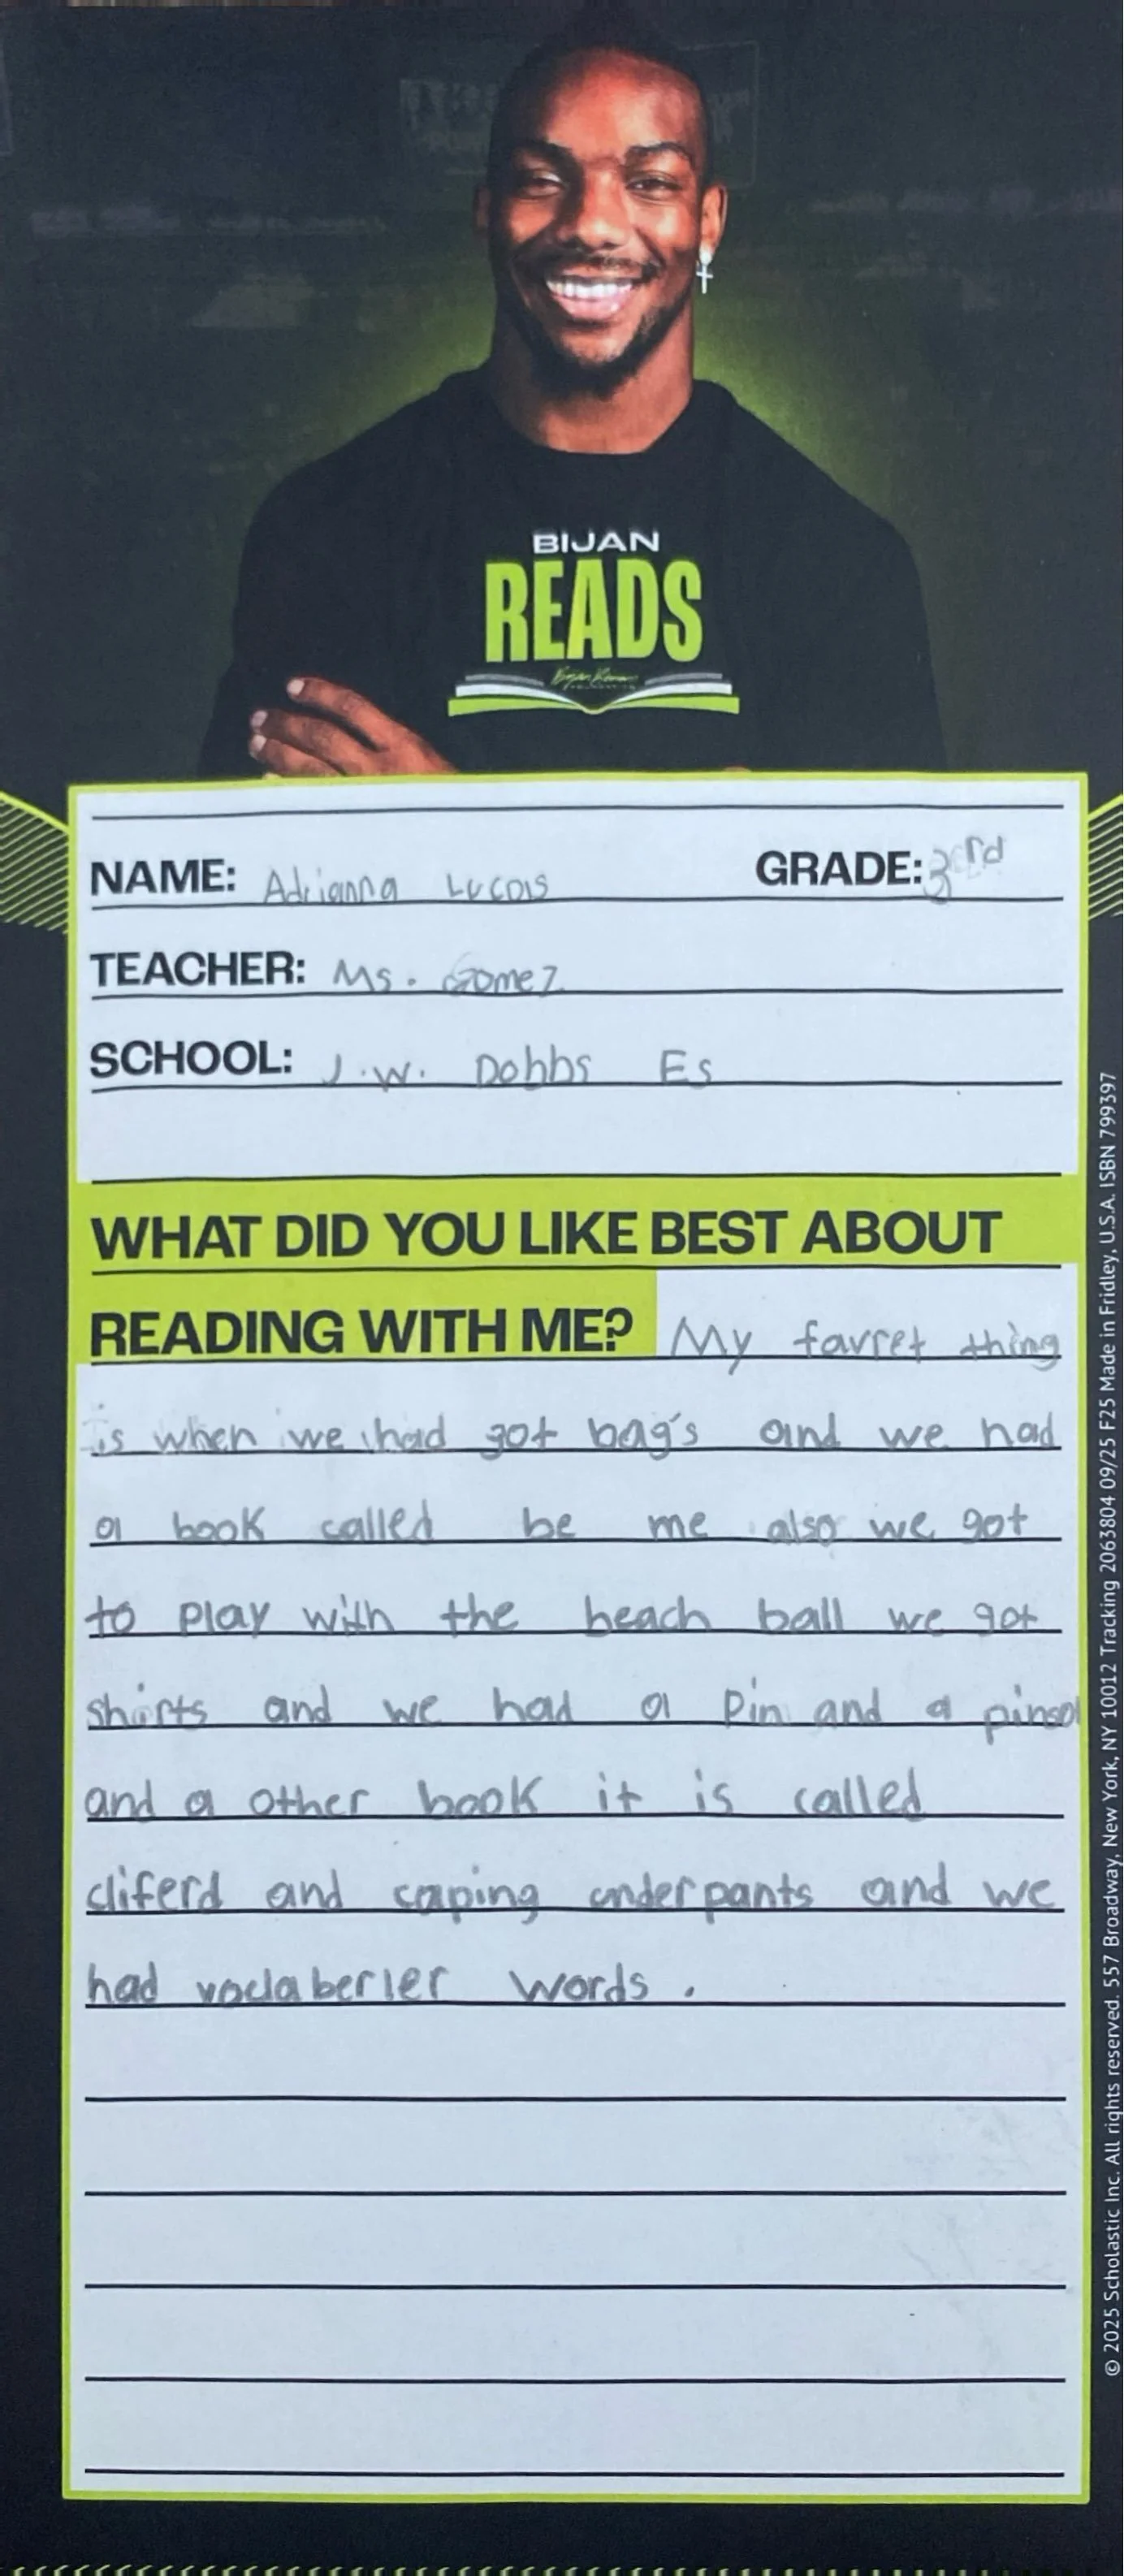 BIJAN
READS
NAME: Adrianna Lucas GRADE: 3rd
TEACHER: Ms. Gomez
SCHOOL: J.W. Dobbs Es
WHAT DID YOU LIKE BEST ABOUT
READING WITH ME? My favret thing
is when we had got bag's and we had
a book called be me also we got
to play with the beach ball we got
shirts and we had a pin and a pinsol
and a other book it is called
cliferd and caping underpants and we
had voclaberler words.
© 2025 Scholastic Inc. All rights reserved. 557 Broadway, New York, NY 10012 Tracking 2063804 09/25 F25 Made in Fridley, U.S.A. ISBN 799397